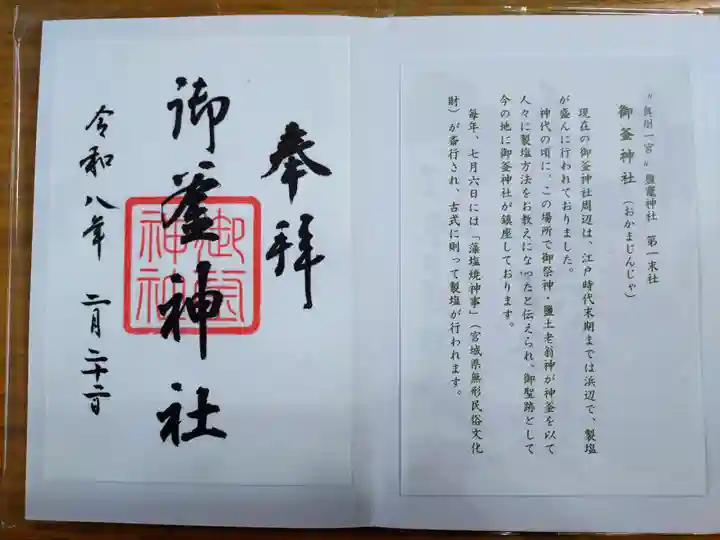 奉拝
御釜神社
御釜神社
令和八年 二月二十二日
〃奥州一宮〃鹽竈神社 第一末社
御釜神社(おかまじんじゃ)
現在の御釜神社周辺は、江戸時代末期までは浜辺で、製塩
が盛んに行われておりました。
神代の頃に、この場所で御祭神・鹽土老翁神が神釜を以て
人々に製塩方法をお教えになったと伝えられ、御聖跡として
今の地に御釜神社が鎮座しております。
毎年、七月六日には「藻塩焼神事」(宮城県無形民俗文化
財)が斎行され、古式に則って製塩が行われます。